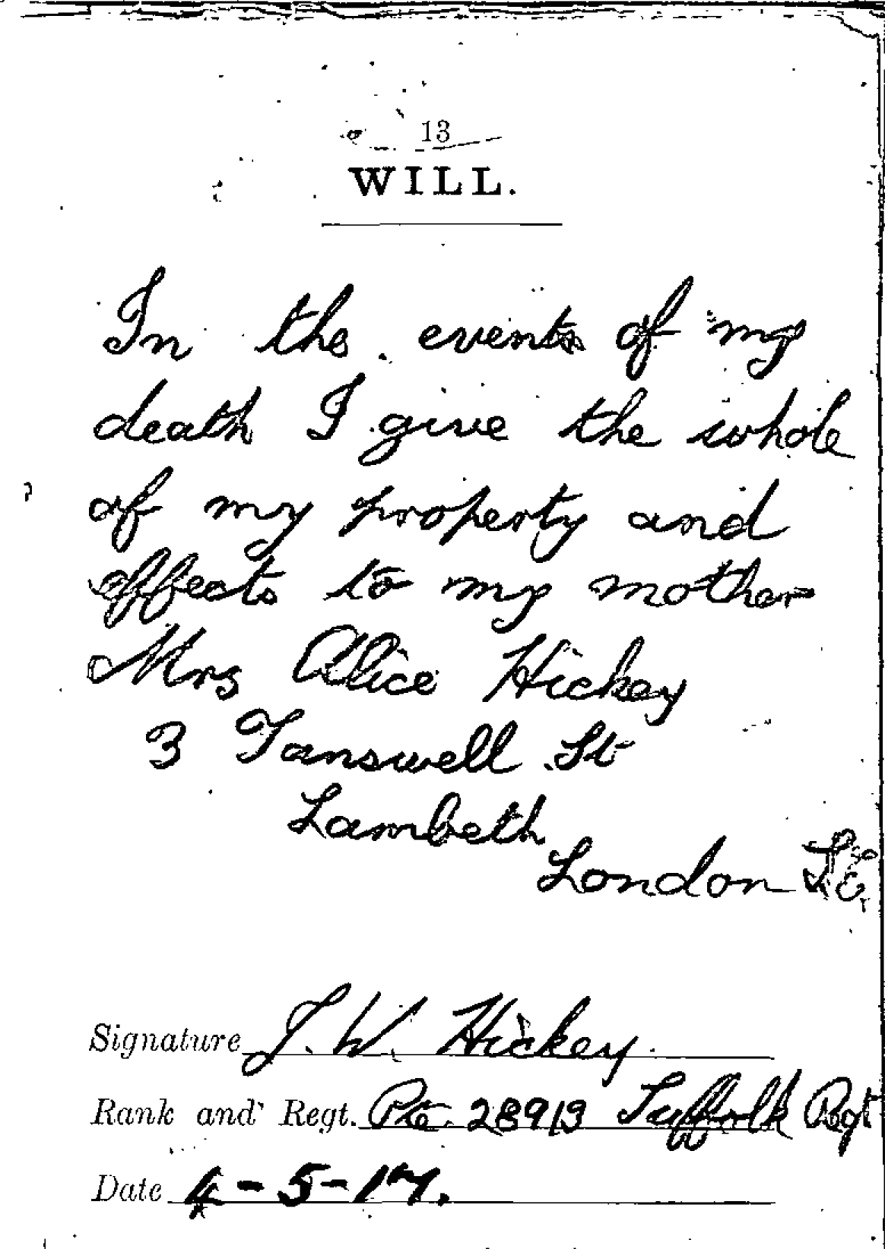 13
WILL.
In the events of my
death I give the whole
of my property and
effects to my mother
Mrs Alice Hickey
3 Tanswell St
Lambeth
London S.E.
Signature J. W. Hickey.
Rank and Regt. Pte. 28913 Suffolk Regt
Date 4-5-17.